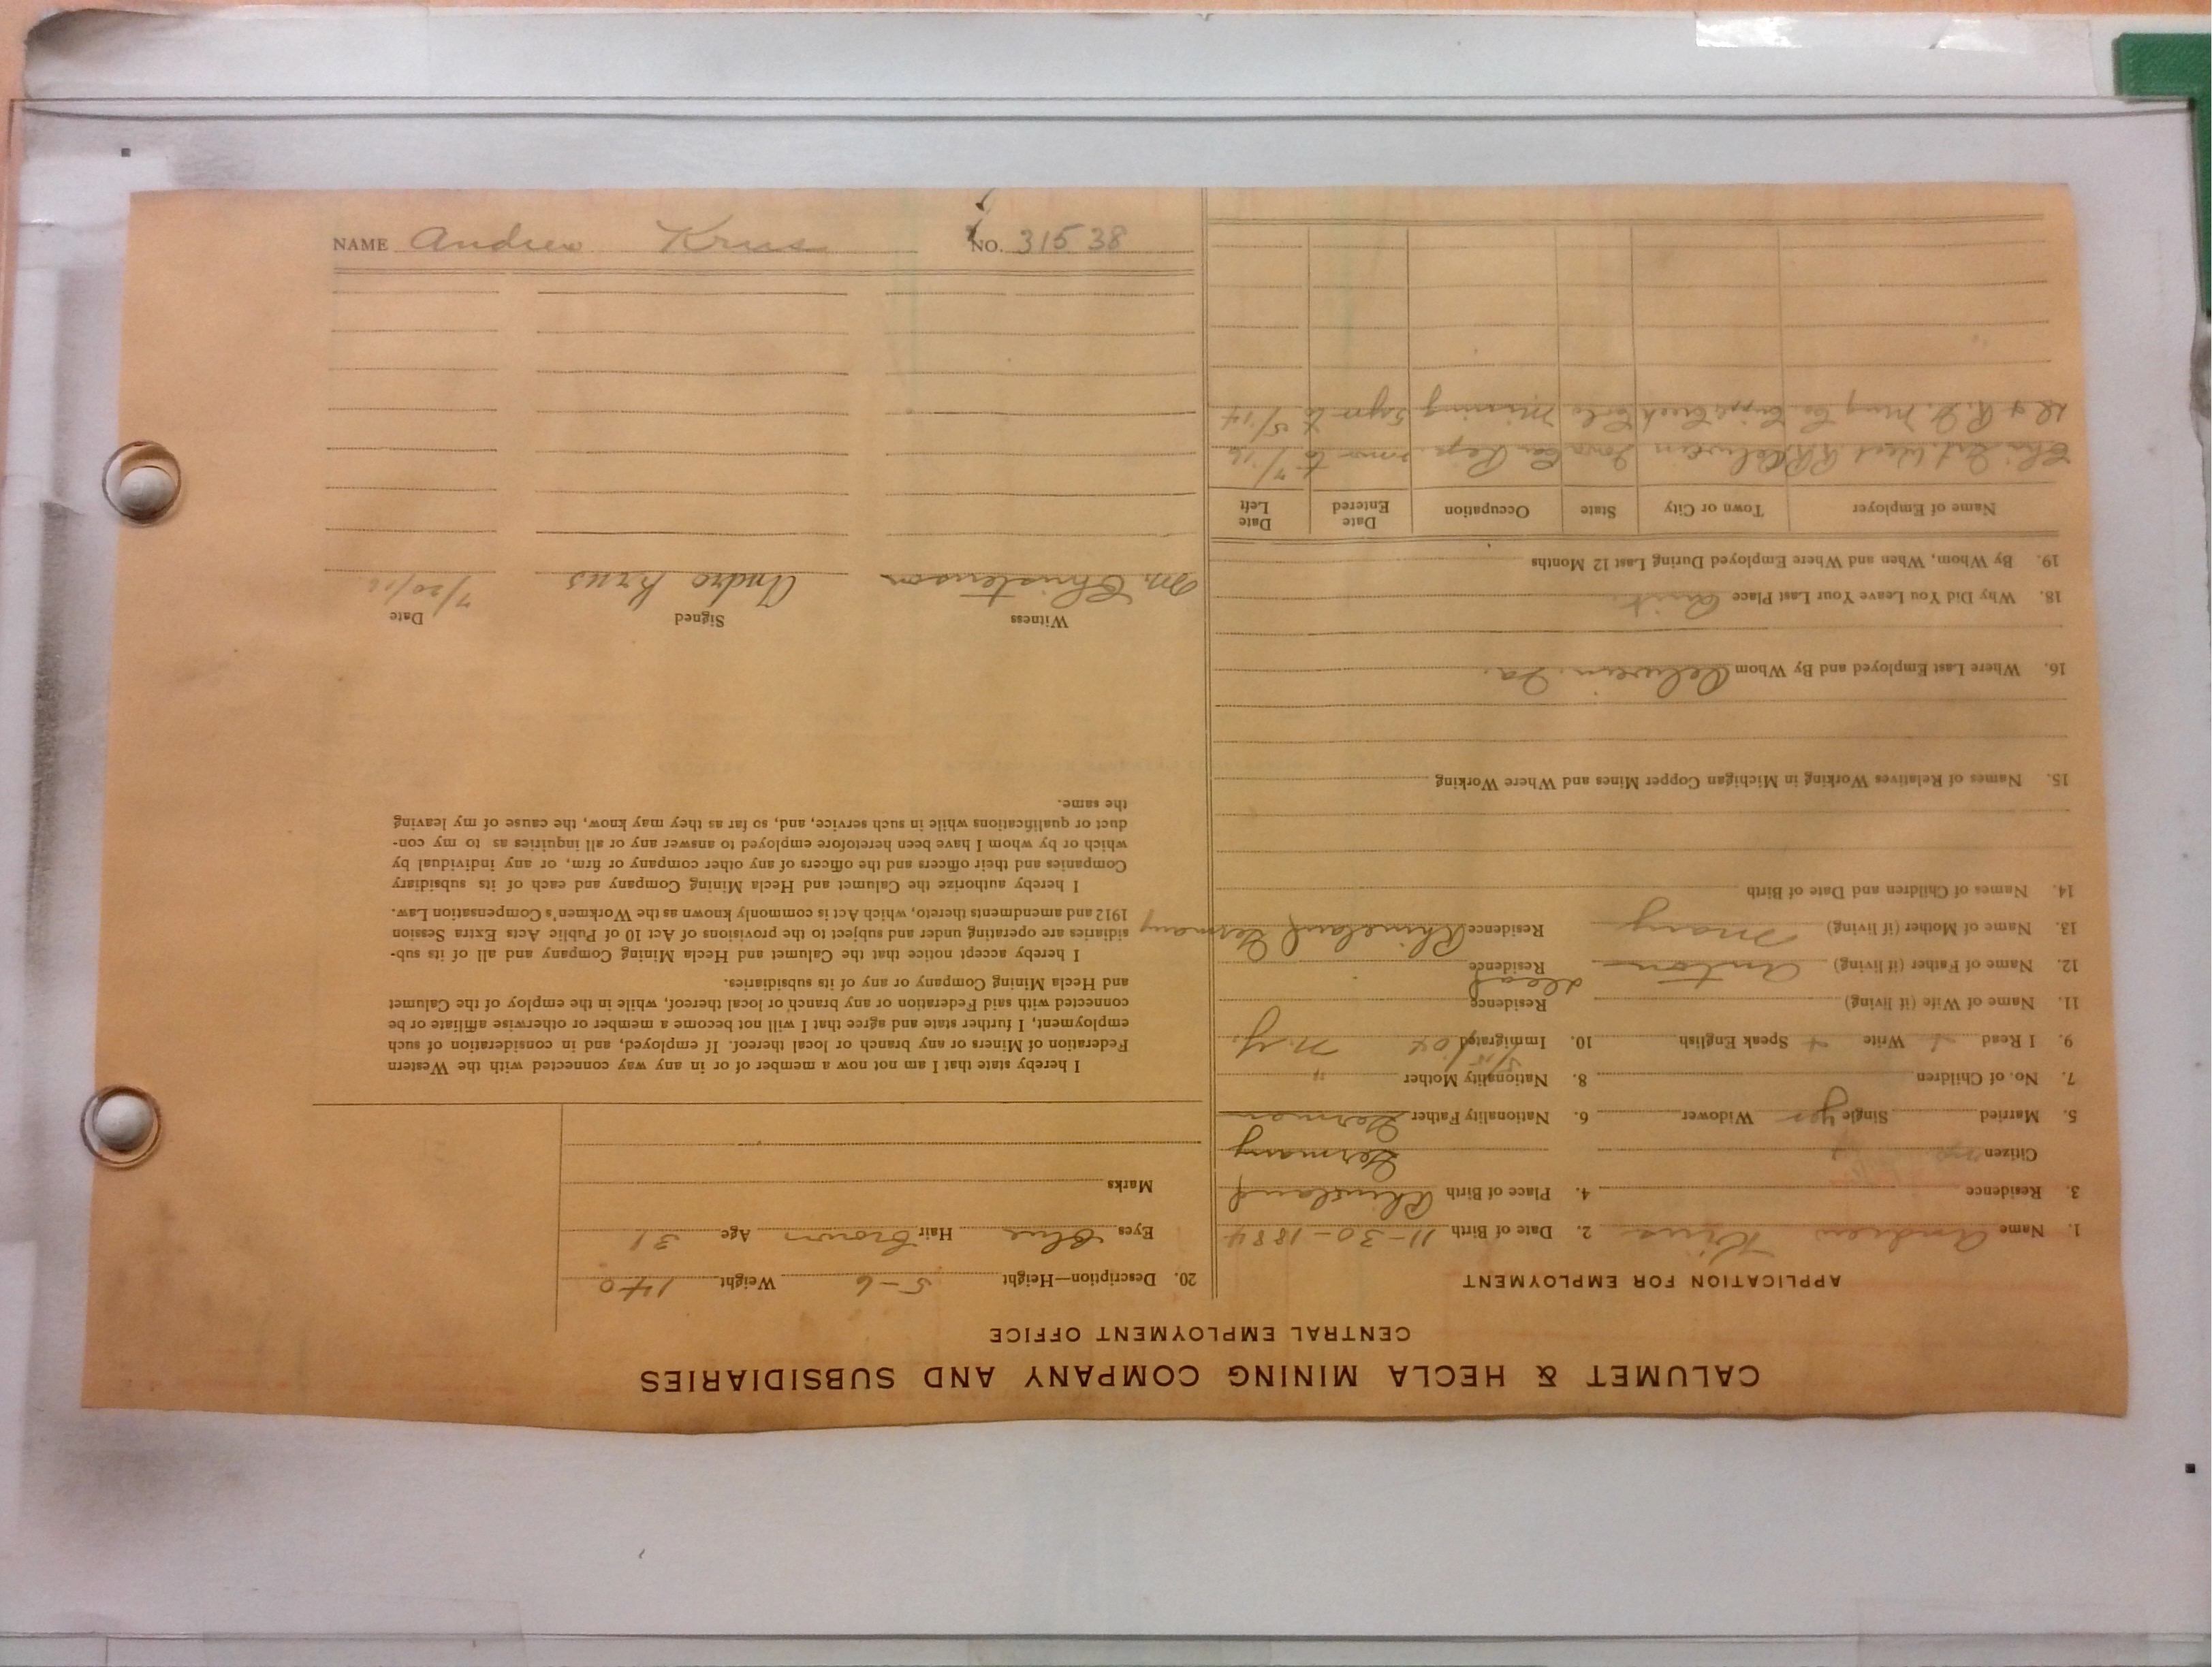 CALUMET & HECLA MINING COMPANY AND SUBSIDIARIES
CENTRAL EMPLOYMENT OFFICE
APPLICATION FOR EMPLOYMENT
1. Name Andrew Krus 2. Date of Birth 11-30-1884
3. Residence 4. Place of Birth Rhineland
Citizen Germany
5. Married Single yes Widower 6. Nationality Father German
7. No. of Children 8. Nationality Mother "
9. I Read Write Speak English 10. Immigrated N.Y.
11. Name of Wife (if living) Residence
12. Name of Father (if living) Anton Residence dead
13. Name of Mother (if living) Mary Residence Rhineland Germany
14. Names of Children and Date of Birth
15. Names of Relatives Working in Michigan Copper Mines and Where Working
16. Where Last Employed and By Whom Oelwein Ia.
18. Why Did You Leave Your Last Place Quit
19. By Whom, When and Where Employed During Last 12 Months
Name of Employer Town or City State Occupation Date Entered Date Left
Chi. Gt. West RR Oelwein Iowa Car Rep. to 7/16
Mng Co Cripple Creek Colo Mining to 5/14
20. Description—Height 5-6 Weight 140
Eyes Blue Hair Brown Age 31
Marks
I hereby state that I am not now a member of or in any way connected with the Western
Federation of Miners or any branch or local thereof. If employed, and in consideration of such
employment, I further state and agree that I will not become a member or otherwise affiliate or be
connected with said Federation or any branch or local thereof, while in the employ of the Calumet
and Hecla Mining Company or any of its subsidiaries.
I hereby accept notice that the Calumet and Hecla Mining Company and all of its sub-
sidiaries are operating under and subject to the provisions of Act 10 of Public Acts Extra Session
1912 and amendments thereto, which Act is commonly known as the Workmen's Compensation Law.
I hereby authorize the Calumet and Hecla Mining Company and each of its subsidiary
Companies and their officers and the officers of any other company or firm, or any individual by
which or by whom I have been heretofore employed to answer any or all inquiries as to my con-
duct or qualifications while in such service, and, so far as they may know, the cause of my leaving
the same.
Witness Signed Date
M. Christenson Andro Krus 7/20/16
NAME Andrew Krus NO. 31538